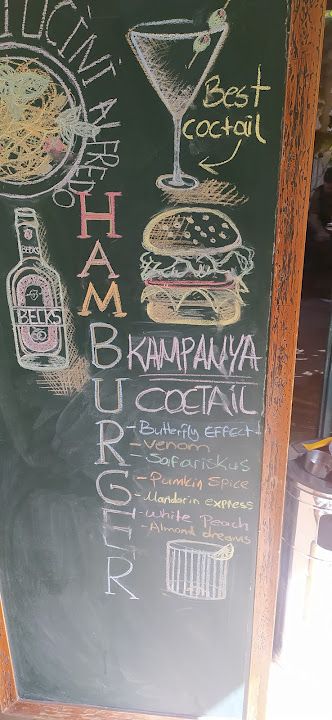 TUCINI ALFREDO
Best
coctail
BECKS
HAMBURGER
KAMPANYA
COCTAIL
- Butterfly EFFect
- Venom
- Safariskus
- Pumkin Spice
- Mandarin express
- White Peach
- Almond dreams